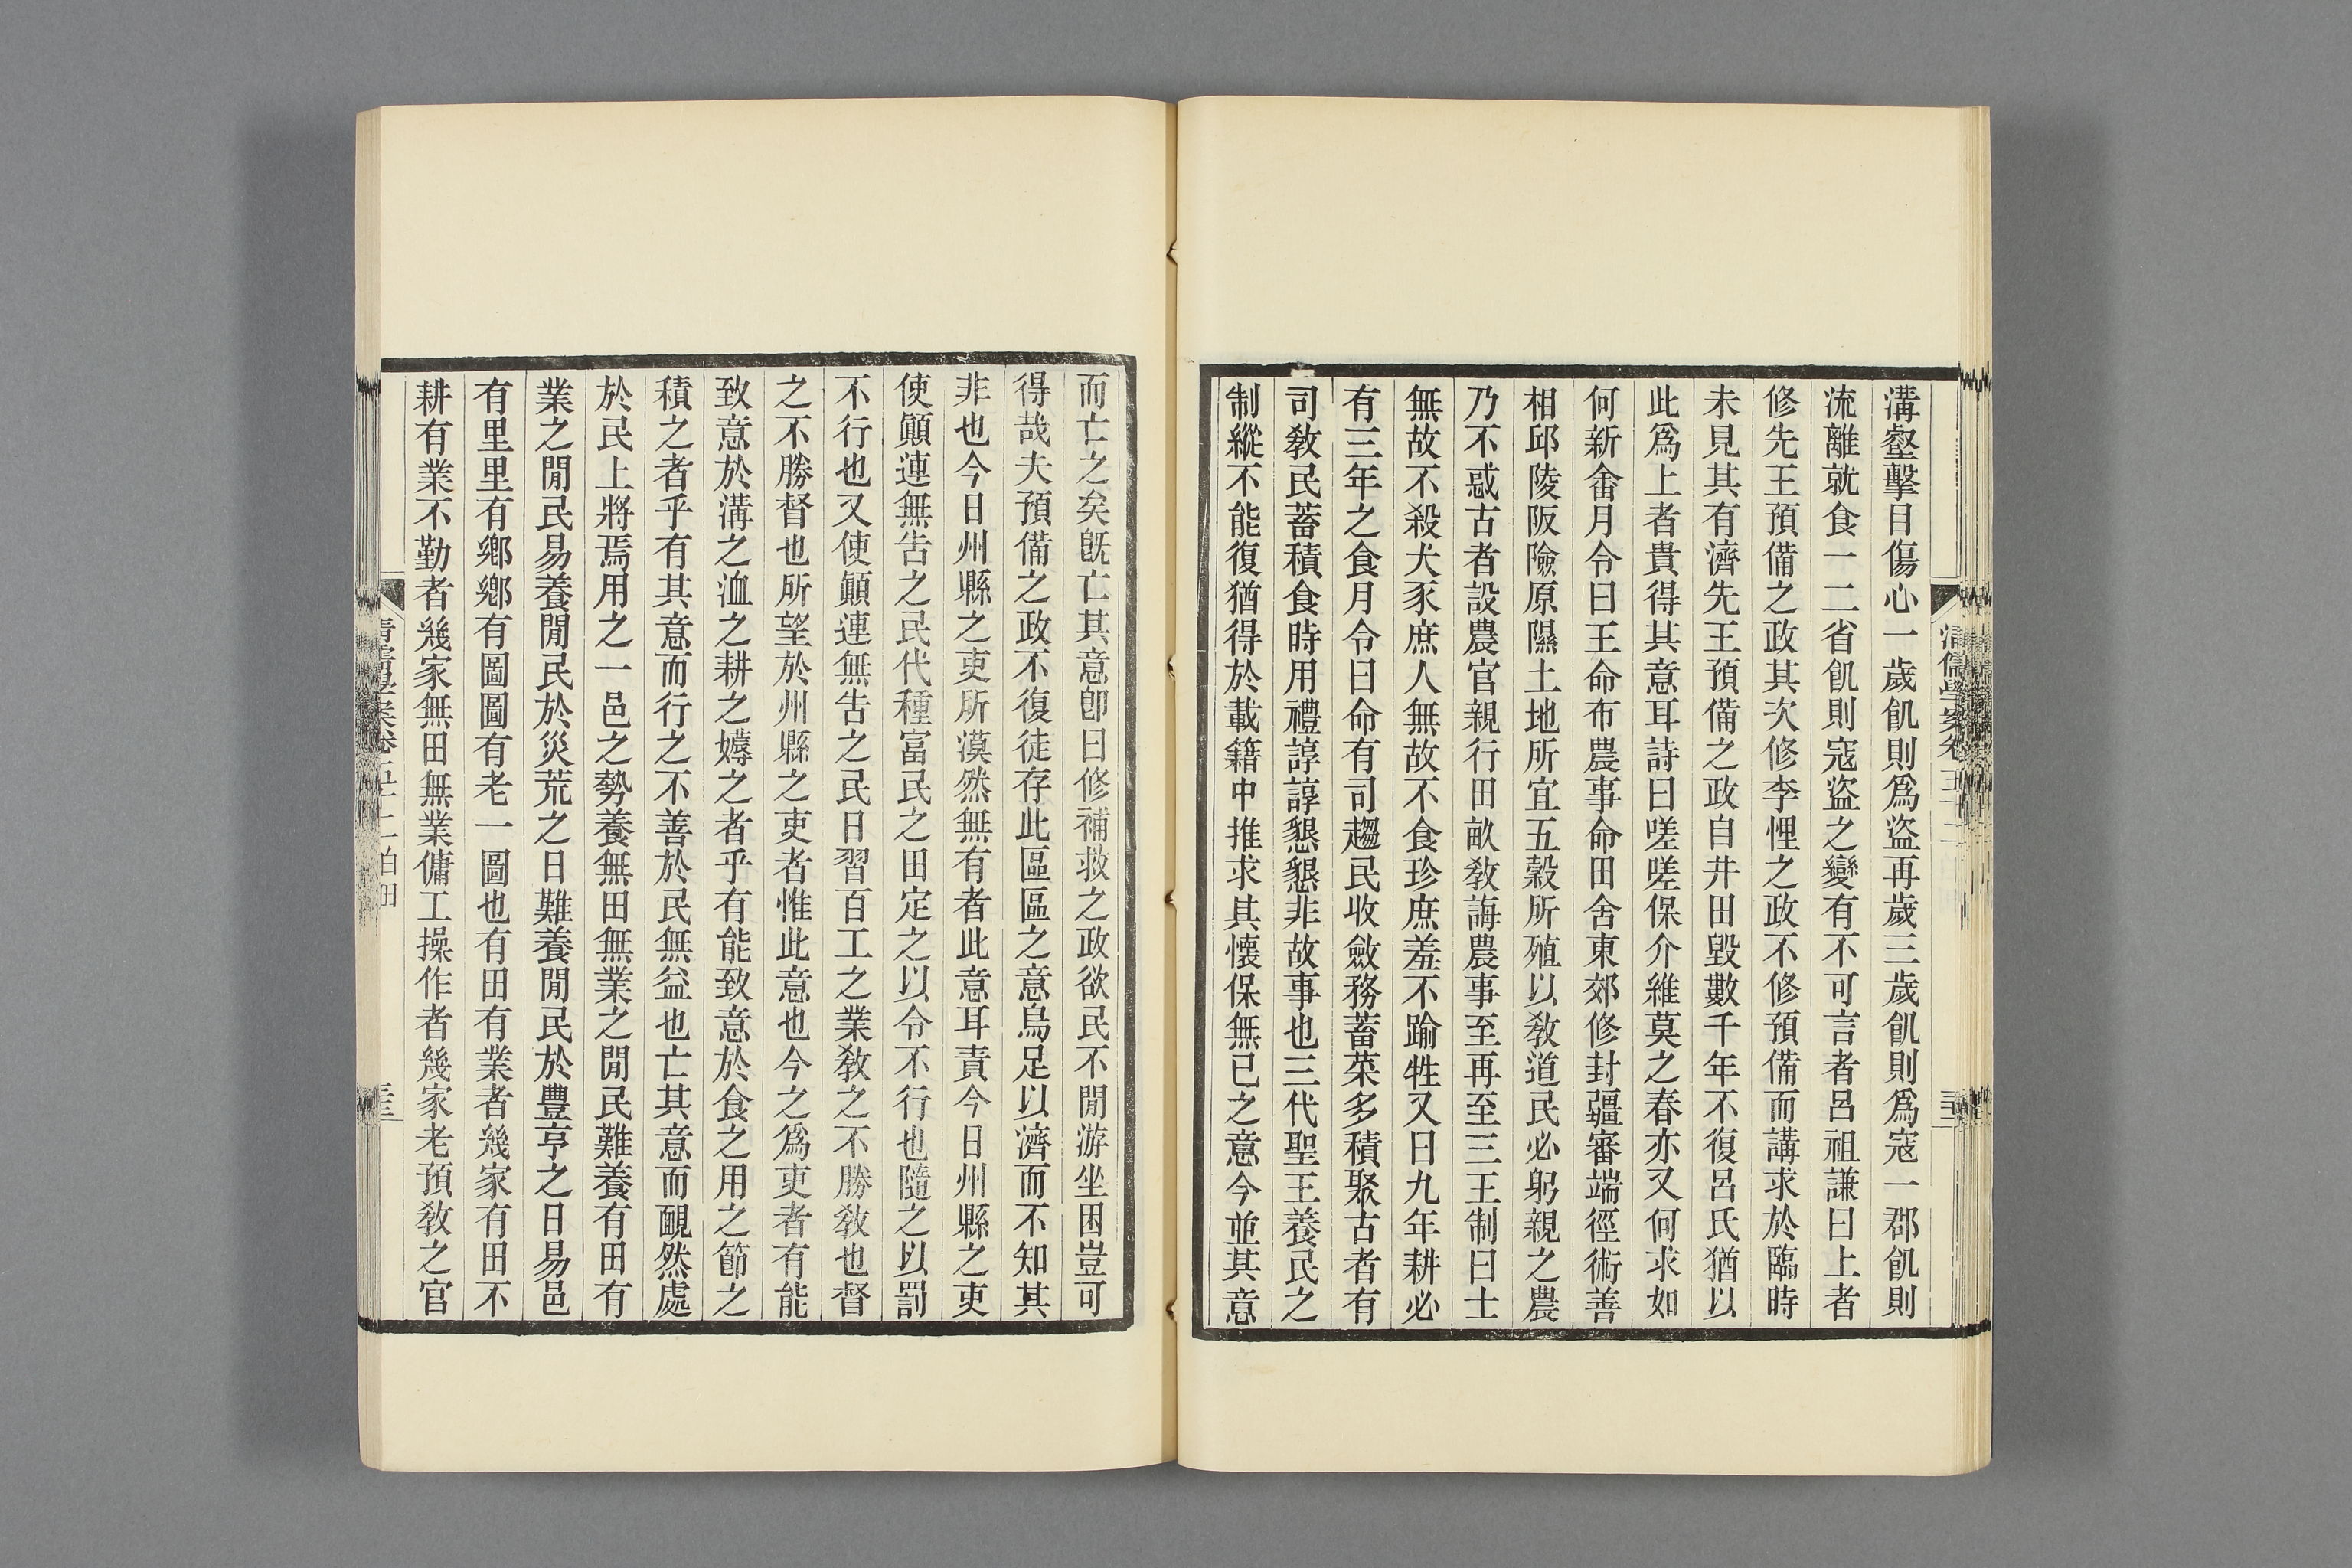 溝壑擊目傷心一歲飢則爲盜再歲三歲飢則爲寇一郡飢則
流離就食一二省飢則寇盜之變有不可言者呂祖謙曰上者
修先王預備之政其次修李悝之政不修預備而講求於臨時
未見其有濟先王預備之政自井田毀數千年不復呂氏猶以
此爲上者貴得其意耳詩曰嗟嗟保介維莫之春亦又何求如
何新畬月令曰王命布農事命田舍東郊修封疆審端徑術善
相邱陵阪險原隰土地所宜五穀所殖以敎道民必躬親之農
乃不惑古者設農官親行田畝敎誨農事至再至三王制曰士
無故不殺犬豕庶人無故不食珍庶羞不踰牲又曰九年耕必
有三年之食月令曰命有司趨民收斂務蓄菜多積聚古者有
司敎民蓄積食時用禮諄諄懇懇非故事也三代聖王養民之
制縱不能復猶得於載籍中推求其懷保無已之意今並其意
清儒學案卷五十二
而亡之矣旣亡其意卽曰修補救之政欲民不閒游坐困豈可
得哉夫預備之政不復徒存此區區之意烏足以濟而不知其
非也今日州縣之吏所漠然無有者此意耳責今日州縣之吏
使顚連無告之民代種富民之田定之以令不行也隨之以罰
不行也又使顚連無告之民日習百工之業敎之不勝敎也督
之不勝督也所望於州縣之吏者惟此意也今之爲吏者有能
致意於溝之洫之耕之耨之者乎有能致意於食之用之節之
積之者乎有其意而行之不善於民無益也亡其意而靦然處
於民上將焉用之一邑之勢養無田無業之閒民難養有田有
業之閒民易養閒民於災荒之日難養閒民於豐亨之日易邑
有里里有鄉鄉有圖圖有老一圖也有田有業者幾家有田不
耕有業不勤者幾家無田無業傭工操作者幾家老預敎之官
清儒學案卷五十二 柏田